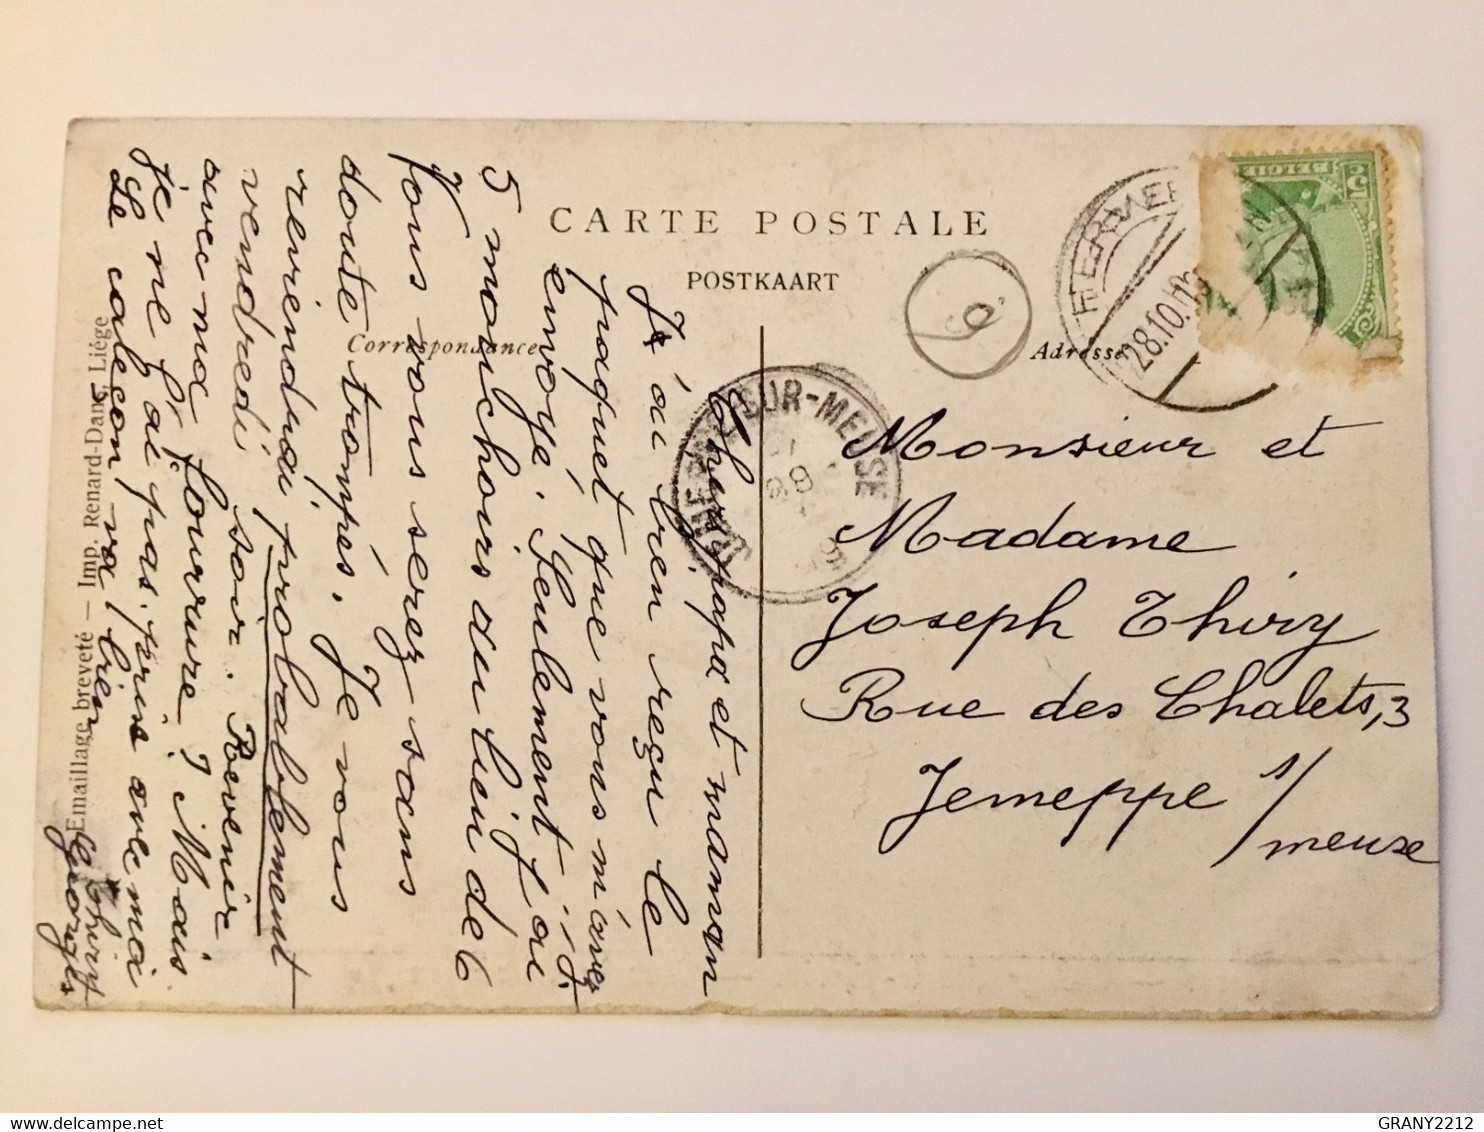 CARTE POSTALE
POSTKAART
Correspondance
Adresse
BELGIE
5
28.10.
SUR-MEUSE
9
Monsieur et
Madame
Joseph Thiry
Rue des Chalets, 3
Jemeppe s/
meuse
Chers papa et maman
J'ai bien reçu le
paquet que vous m'avez
envoyé. Seulement j'ai
5 mouchoirs au lieu de 6
Vous vous serez sans
doute trompés. Je vous
reviendrai probablement
vendredi soir. Revenir
avec ma fourrure? Mais
je ne l'ai pas prise avec moi
Le caleçon va bien
Georges
Emaillage breveté — Imp. Renard-Dans, Liége
GRANY2212